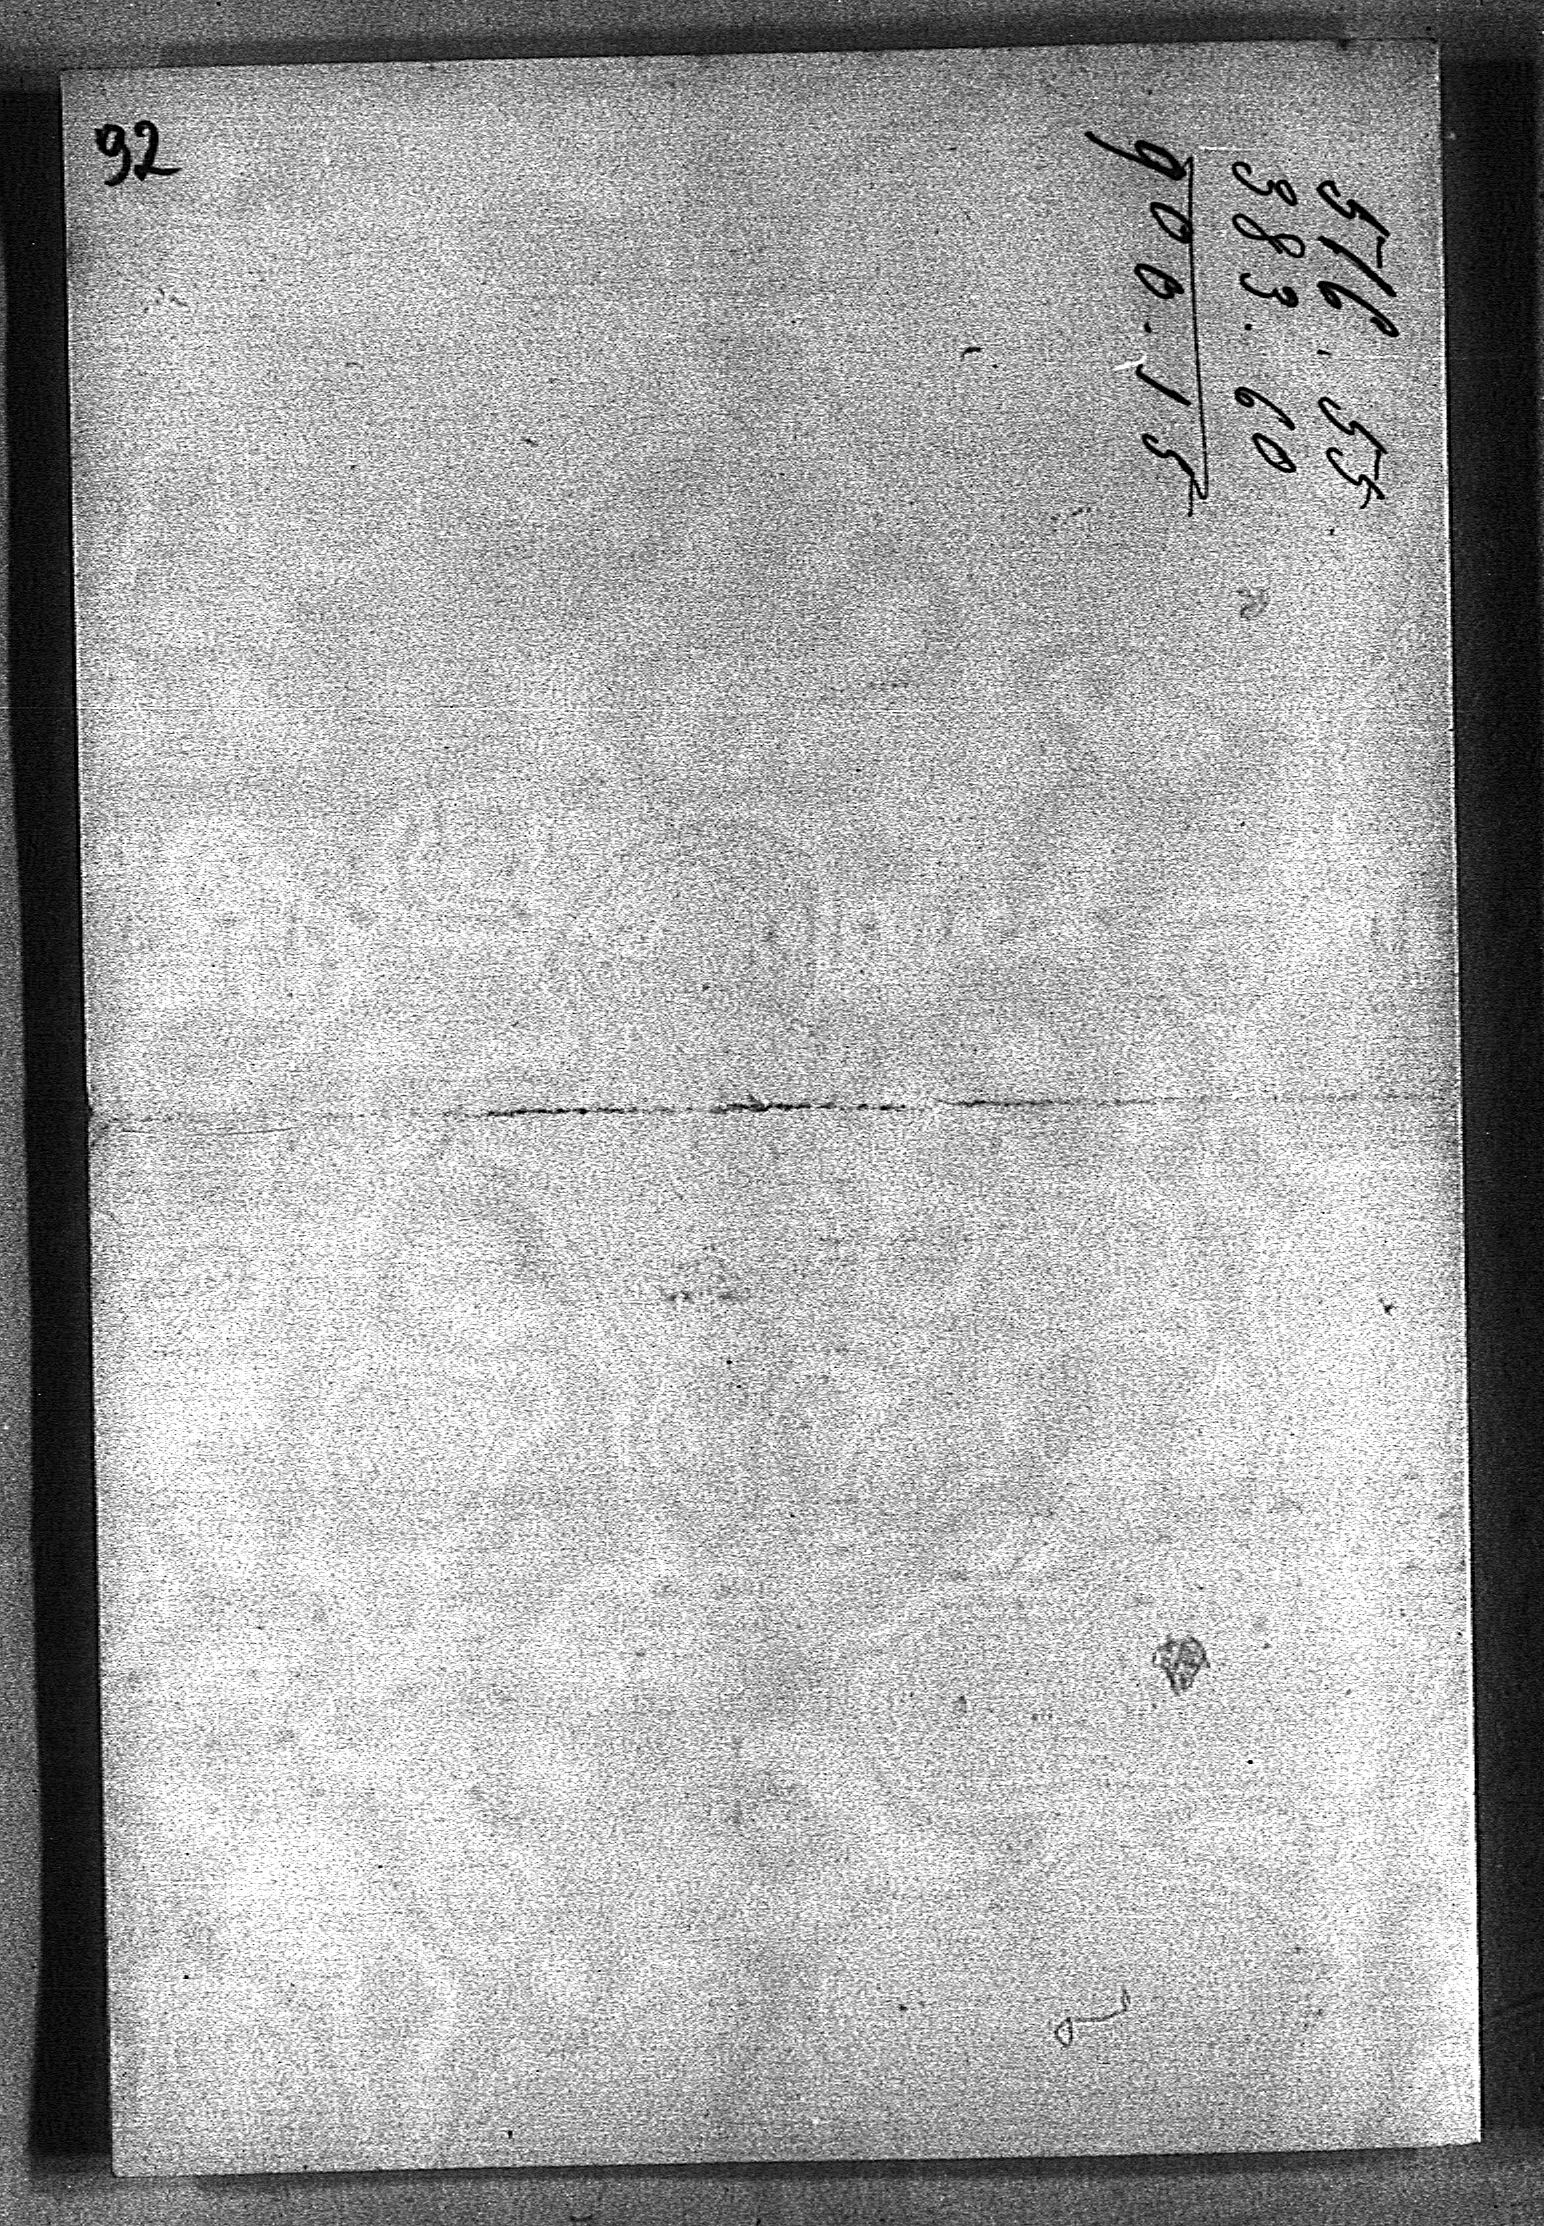 92
516.55
383.60
900.15